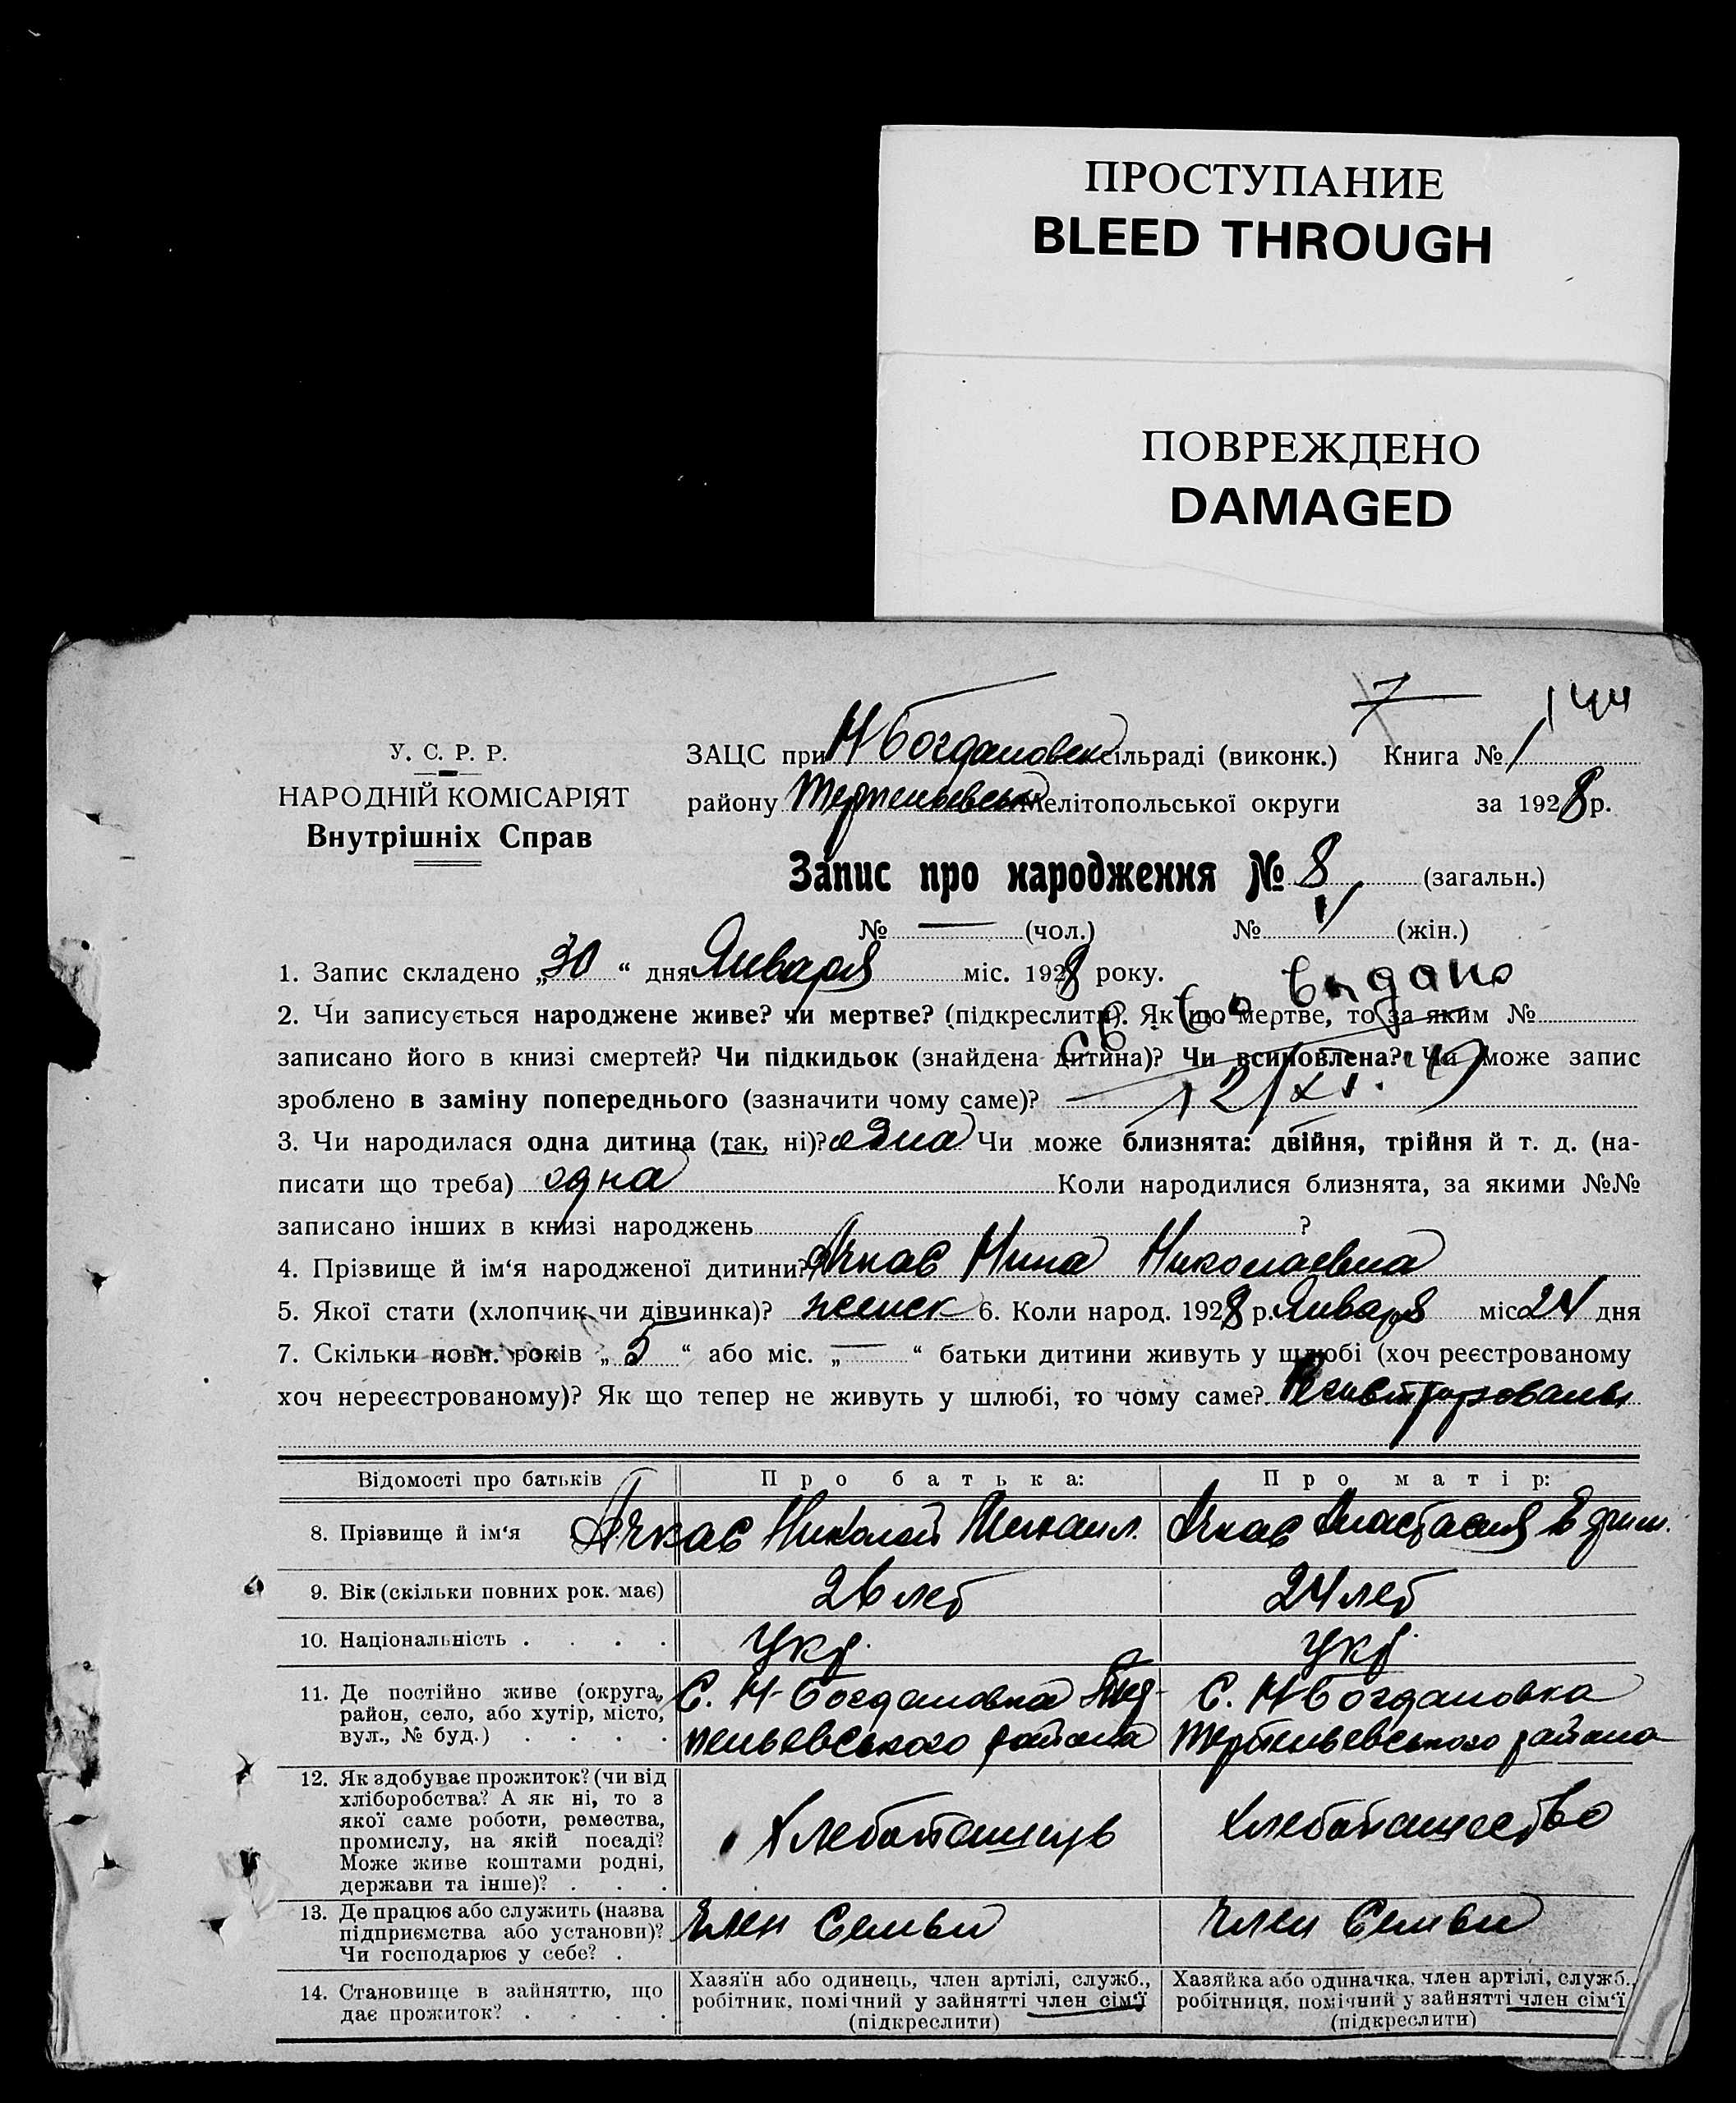 ПРОСТУПАНИЕ
BLEED THROUGH
ПОВРЕЖДЕНО
DAMAGED
7 144
У. С. Р. Р.
НАРОДНІЙ КОМІСАРІЯТ
Внутрішніх Справ
ЗАЦС при Н Богдановск сільраді (виконк.) Книга № 1
району Терпеньевськ Мелітопольської округи за 1928 р.
Запис про народження № 8 (загальн.)
№ — (чол.) № (жін.)
1. Запис складено „30“ дня Января міс. 1928 року.
св-во выдано
2. Чи записується народжене живе? чи мертве? (підкреслити). Як що мертве, то за яким №
записано його в книзі смертей? Чи підкидьок (знайдена дитина)? Чи всиновлена? Чи може запис
зроблено в заміну попереднього (зазначити чому саме)?
3. Чи народилася одна дитина (так, ні)? одна Чи може близнята: двійня, трійня й т. д. (на-
писати що треба) одна Коли народилися близнята, за якими №№
записано інших в книзі народжень ?
4. Прізвище й ім‘я народженої дитини? Ачкас Нина Николаевна
5. Якої стати (хлопчик чи дівчинка)? женск 6. Коли народ. 1928 р. Января міс 24 дня
7. Скільки повн. років „5“ або міс. „—“ батьки дитини живуть у шлюбі (хоч реєстрованому
хоч нереєстрованому)? Як що тепер не живуть у шлюбі, то чому саме?
Відомості про батьків
Про батька:
Про матір:
8. Прізвище й ім‘я
Ачкас Николай Михаил.
Ачкас Анастасия
9. Вік (скільки повних рок. має)
26 лет
24 лет
10. Національність . . . .
укр.
укр.
11. Де постійно живе (округа,
район, село, або хутір, місто,
вул., № буд.) . . . .
С. Н-Богдановка Тер-
пеньевського района
С. Н-Богдановка
Терпеньевського района
12. Як здобуває прожиток? (чи від
хліборобства? А як ні, то з
якої саме роботи, ремества,
промислу, на якій посаді?
Може живе коштами родні,
держави та інше)? . . .
Хлебопашець
Хлебопашество
13. Де працює або служить (назва
підприємства або установи)?
Чи господарює у себе? .
Член Семьи
Член Семьи
14. Становище в зайняттю, що
дає прожиток? . . . .
Хазяїн або одинець, член артілі, служб.,
робітник, помічний у зайнятті член сім‘ї
(підкреслити)
Хазяйка або одиначка, член артілі, служб.,
робітниця, помічний у зайнятті член сім‘ї
(підкреслити)